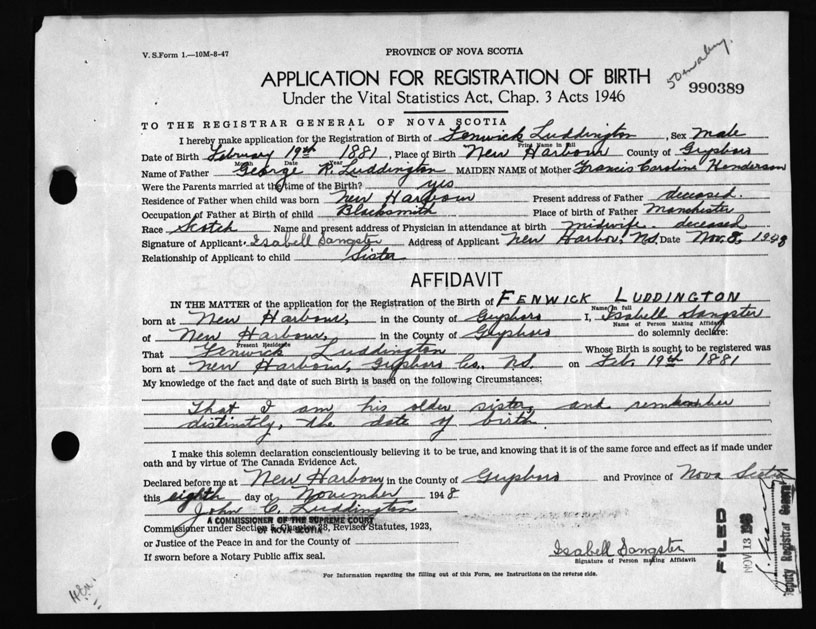 V. S. Form 1.—10M-8-47
PROVINCE OF NOVA SCOTIA
APPLICATION FOR REGISTRATION OF BIRTH
990389
Under the Vital Statistics Act, Chap. 3 Acts 1946
TO THE REGISTRAR GENERAL OF NOVA SCOTIA
I hereby make application for the Registration of Birth of Fenwick Luddington, Sex Male
Print Name in full
Date of Birth February 19th 1881, Place of Birth New Harbour County of Guysboro
Month Date Year
Name of Father George R. Luddington MAIDEN NAME of Mother Francis Caroline Henderson
Were the Parents married at the time of the Birth? yes
Residence of Father when child was born New Harbour Present address of Father deceased.
Occupation of Father at Birth of child Blacksmith Place of birth of Father Manchester
Race Scotch Name and present address of Physician in attendance at birth midwife. deceased
Signature of Applicant Isabell Sangster Address of Applicant New Harbor, N.S. Date Nov. 8, 1948
Relationship of Applicant to child Sister
AFFIDAVIT
IN THE MATTER of the application for the Registration of the Birth of FENWICK LUDDINGTON
Name in full
born at New Harbour, in the County of Guysboro I, Isabell Sangster
Name of Person Making Affidavit
of New Harbour, in the County of Guysboro do solemnly declare:
Present Residence
That Fenwick Luddington Whose Birth is sought to be registered was
born at New Harbour, Guysboro Co. N.S. on Feb. 19th 1881
My knowledge of the fact and date of such Birth is based on the following Circumstances:
That I am his older sister, and remember
distinctly, the date of birth.
I make this solemn declaration conscientiously believing it to be true, and knowing that it is of the same force and effect as if made under
oath and by virtue of The Canada Evidence Act.
Declared before me at New Harbour in the County of Guysboro and Province of Nova Scotia
this eighth day of November 1948
John C. Luddington
A COMMISSIONER OF THE SUPREME COURT
OF NOVA SCOTIA
Commissioner under Section 5, Chapter 38, Revised Statutes, 1923,
or Justice of the Peace in and for the County of
If sworn before a Notary Public affix seal.
Isabell Sangster
Signature of Person making Affidavit
For Information regarding the filling out of this Form, see Instructions on the reverse side.
FILED
NOV 13 1948
Deputy Registrar General